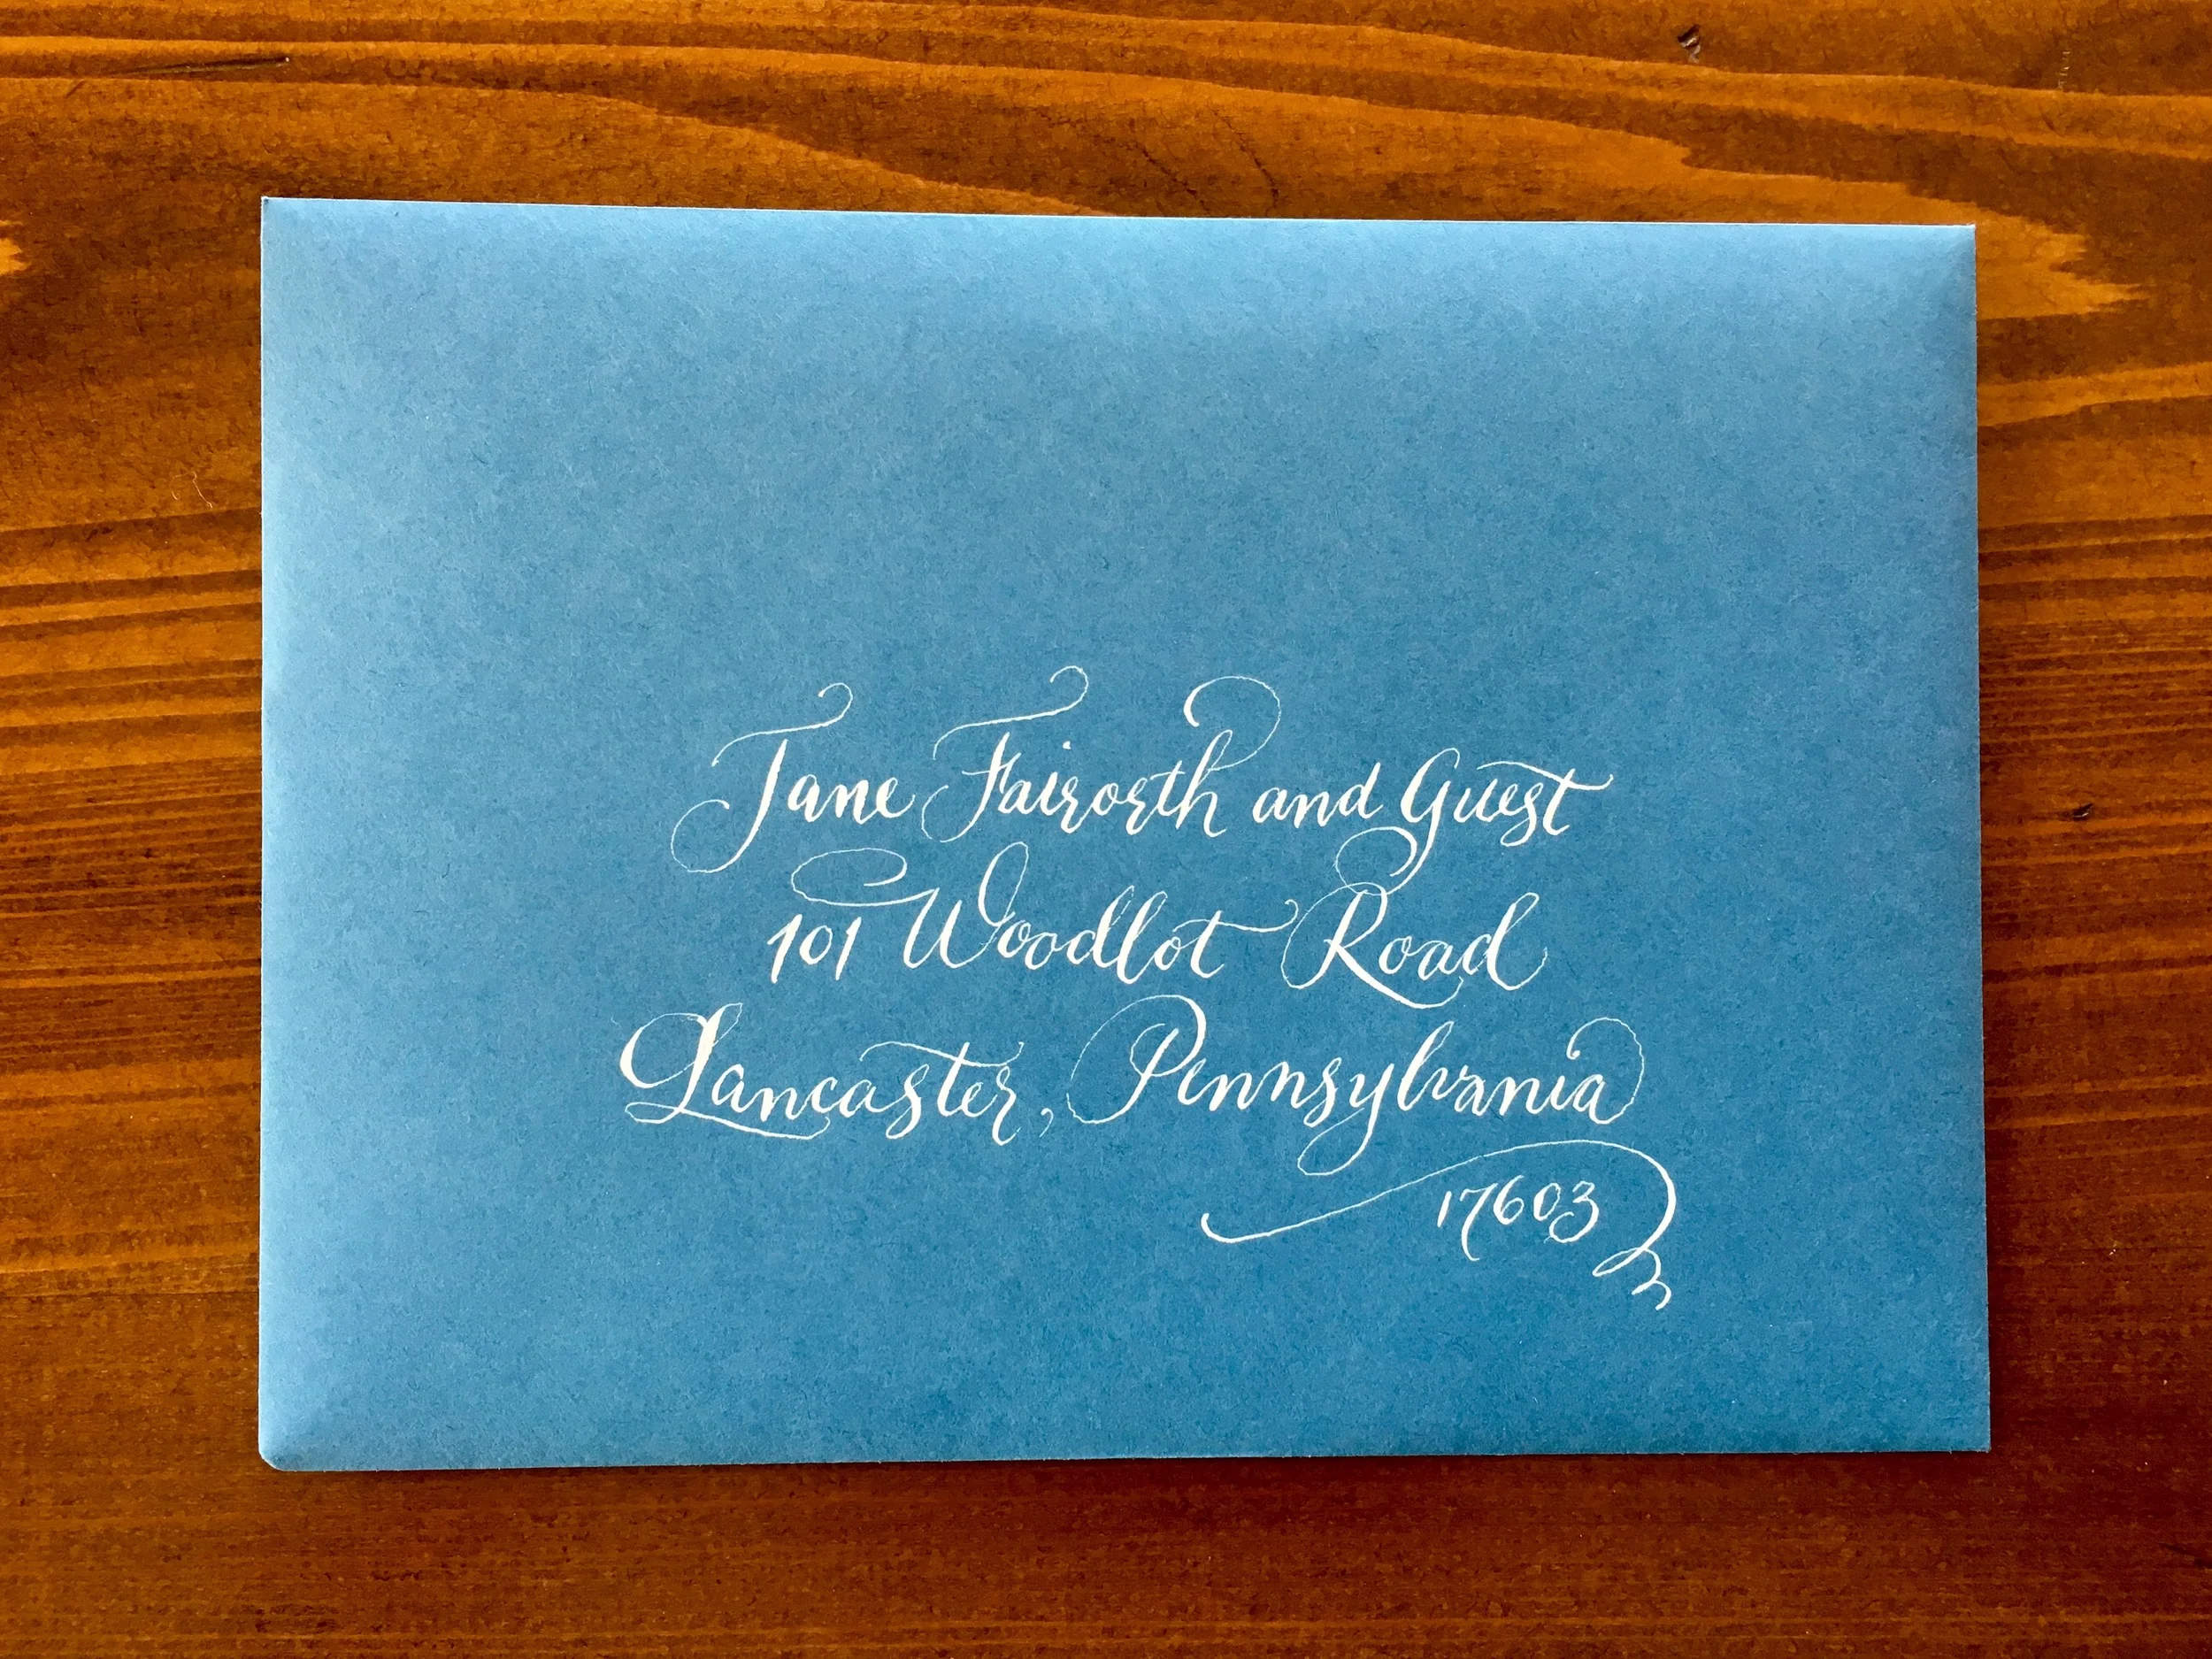 Jane Fairorth and Guest
101 Woodlot Road
Lancaster, Pennsylvania
17603